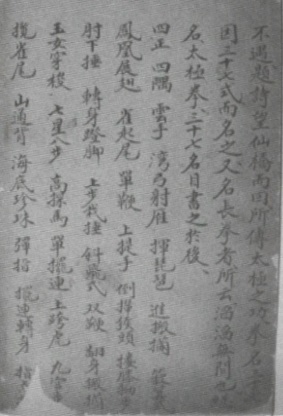 不過題詩望仙橋而回所傳太極之功拳名三
因三十七式而名之又名長拳者所云滔滔無間也
名太極拳三十七名目書之於後
四正 四隅 雲手 灣弓射雁 揮琵琶 進搬攔 簸箕
鳳凰展翅 雀起尾 單鞭 上提手 倒攆猴頭 摟膝
肘下捶 轉身蹬脚 上步栽捶 斜飛式 双鞭 翻身搬攔
玉女穿梭 七星八步 高探馬 單擺連 上跨虎 九宮
攬雀尾 山通背 海底珍珠 彈指 擺連轉身 指